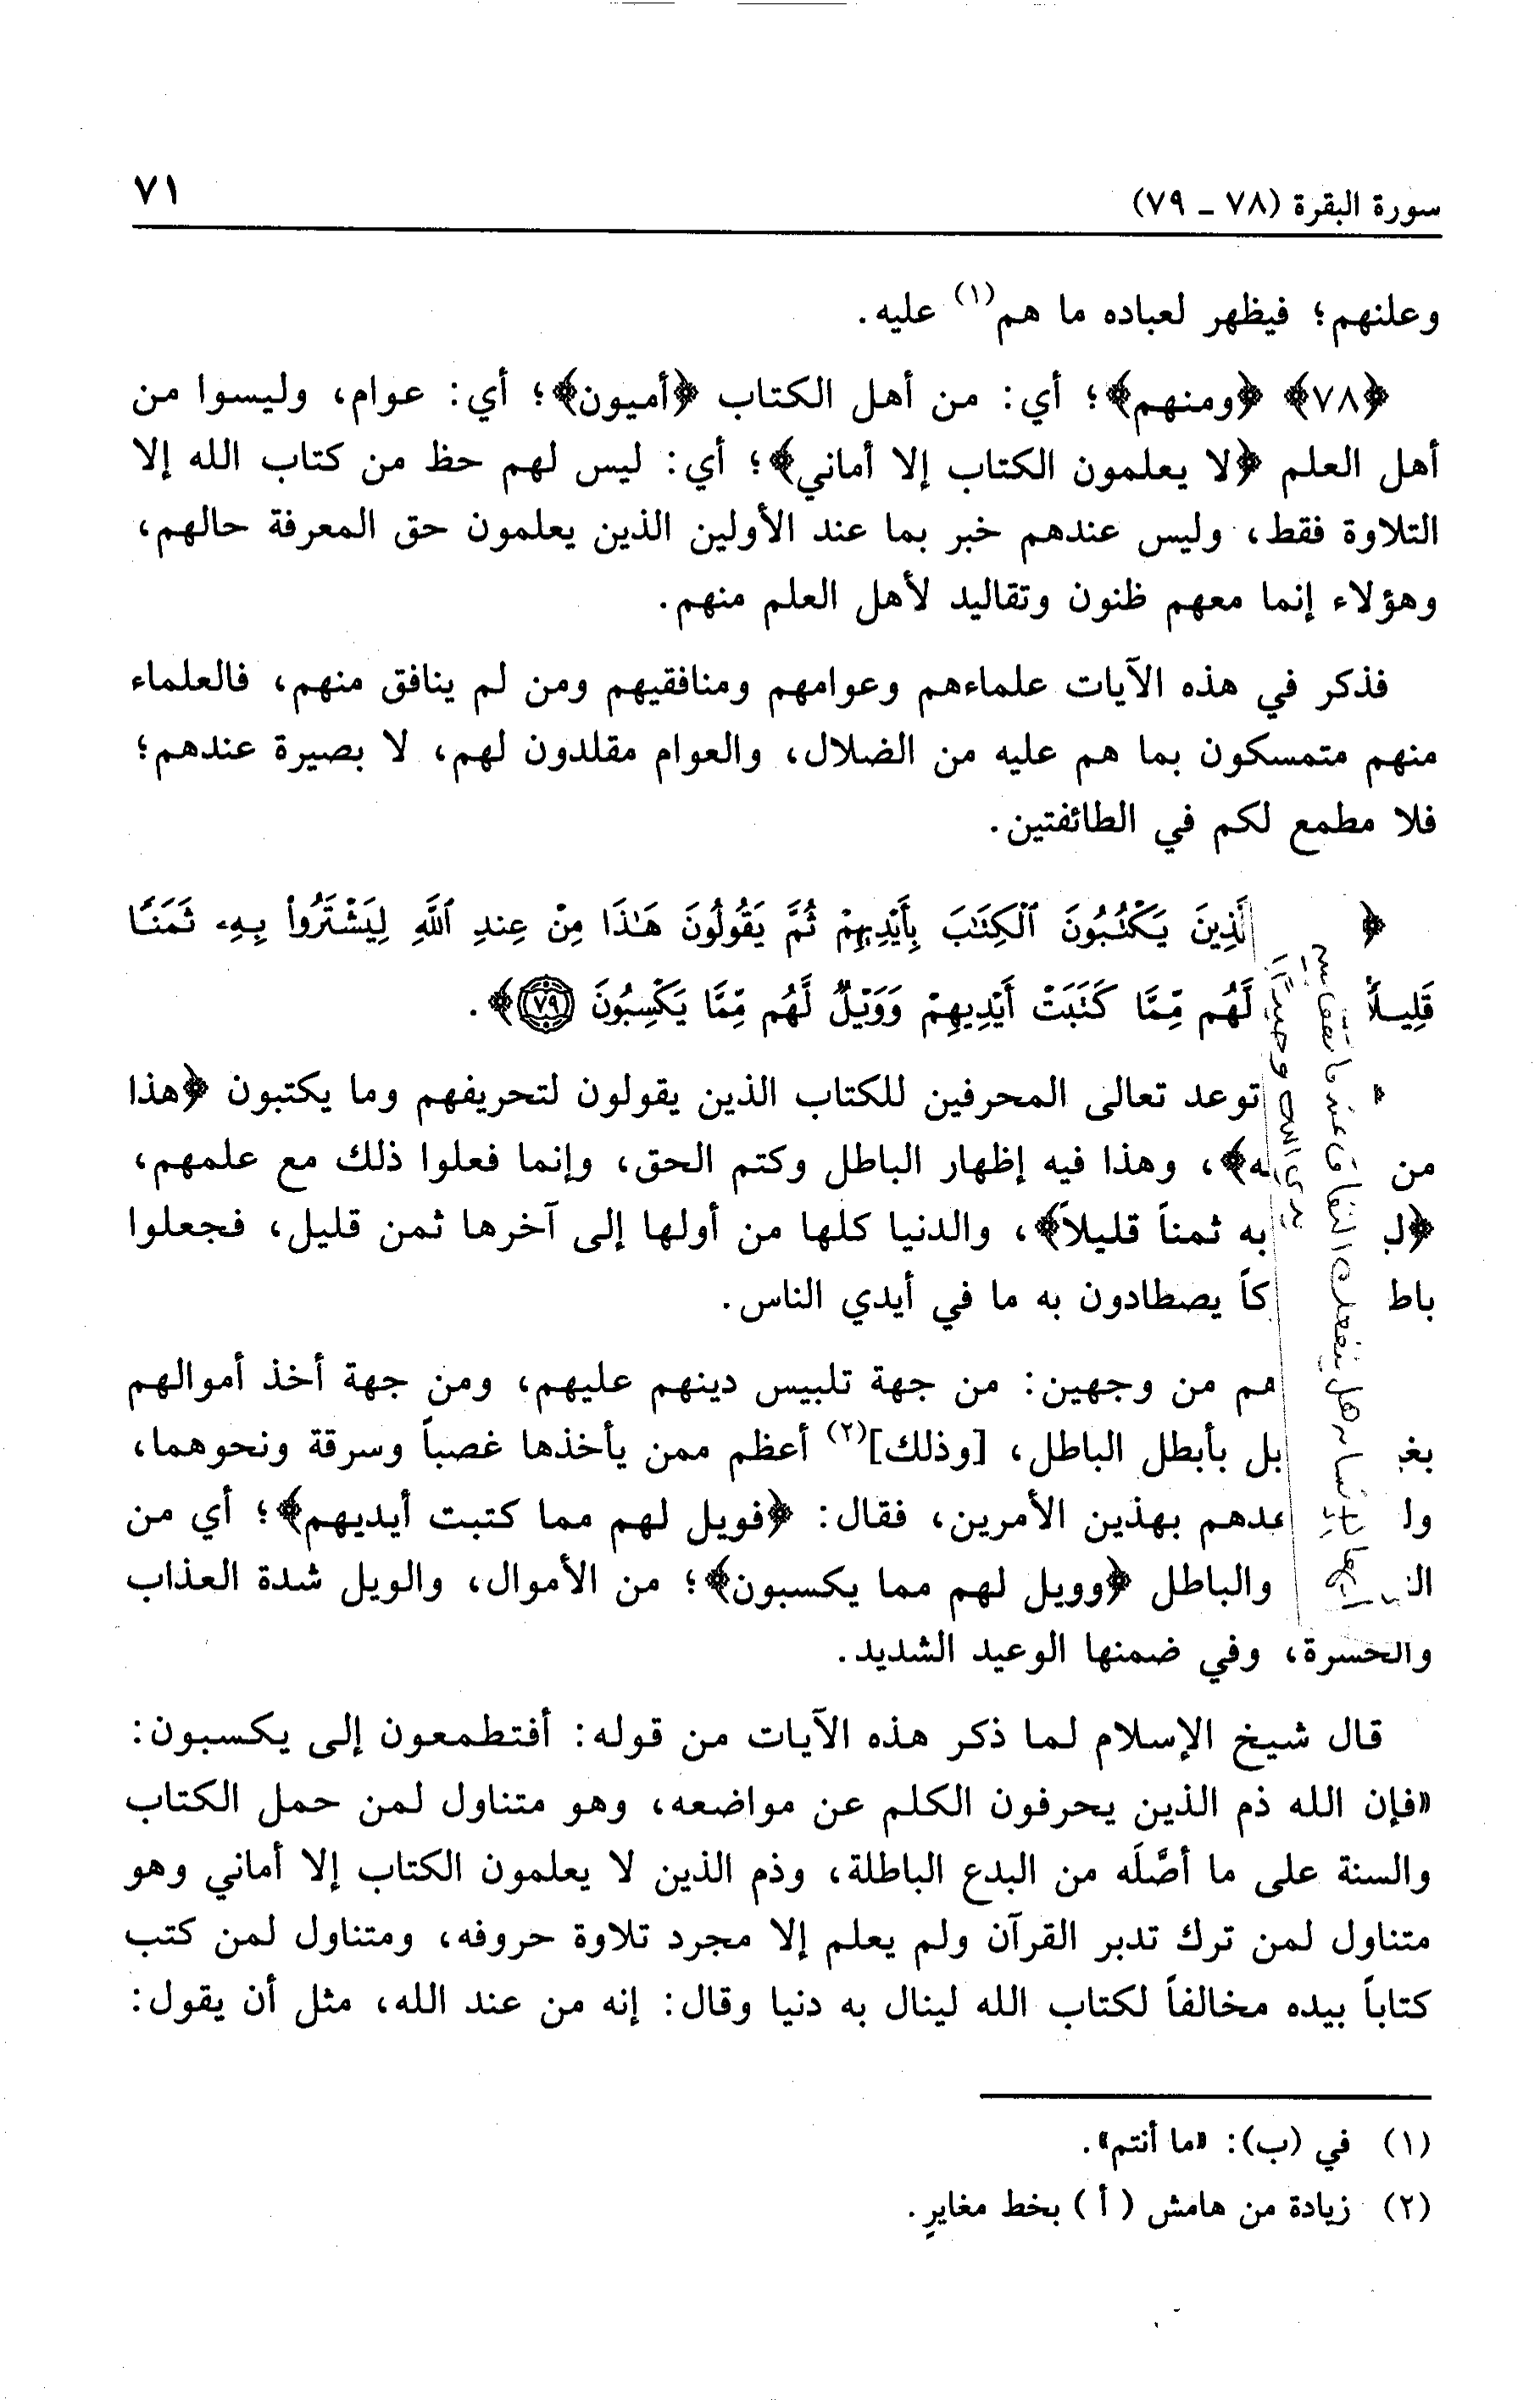 سورة البقرة (٧٨ - ٧٩)
٧١
وعلنهم؛ فيظهر لعباده ما هم(١) عليه.
﴿٧٨﴾ ﴿ومنهم﴾؛ أي: من أهل الكتاب ﴿أميون﴾؛ أي: عوام، وليسوا من
أهل العلم ﴿لا يعلمون الكتاب إلا أماني﴾؛ أي: ليس لهم حظ من كتاب الله إلا
التلاوة فقط، وليس عندهم خبر بما عند الأولين الذين يعلمون حق المعرفة حالهم،
وهؤلاء إنما معهم ظنون وتقاليد لأهل العلم منهم.
فذكر في هذه الآيات علماءهم وعوامهم ومنافقيهم ومن لم ينافق منهم، فالعلماء
منهم متمسكون بما هم عليه من الضلال، والعوام مقلدون لهم، لا بصيرة عندهم؛
فلا مطمع لكم في الطائفتين.
﴿ لَّذِينَ يَكْتُبُونَ ٱلْكِتَٰبَ بِأَيْدِيهِمْ ثُمَّ يَقُولُونَ هَٰذَا مِنْ عِندِ ٱللَّهِ لِيَشْتَرُوا۟ بِهِۦ ثَمَنًا
قَلِيلًا لَهُم مِّمَّا كَتَبَتْ أَيْدِيهِمْ وَوَيْلٌ لَّهُم مِّمَّا يَكْسِبُونَ ٧٩﴾.
توعد تعالى المحرفين للكتاب الذين يقولون لتحريفهم وما يكتبون ﴿هذا
من ـه﴾، وهذا فيه إظهار الباطل وكتم الحق، وإنما فعلوا ذلك مع علمهم،
﴿لـ به ثمناً قليلاً﴾، والدنيا كلها من أولها إلى آخرها ثمن قليل، فجعلوا
باط كاً يصطادون به ما في أيدي الناس.
هم من وجهين: من جهة تلبيس دينهم عليهم، ومن جهة أخذ أموالهم
بغـ بل بأبطل الباطل، [وذلك](٢) أعظم ممن يأخذها غصباً وسرقة ونحوهما،
ولـ عدهم بهذين الأمرين، فقال: ﴿فويل لهم مما كتبت أيديهم﴾؛ أي من
الـ والباطل ﴿وويل لهم مما يكسبون﴾؛ من الأموال، والويل شدة العذاب
والحسرة، وفي ضمنها الوعيد الشديد.
قال شيخ الإسلام لما ذكر هذه الآيات من قوله: أفتطمعون إلى يكسبون:
«فإن الله ذم الذين يحرفون الكلم عن مواضعه، وهو متناول لمن حمل الكتاب
والسنة على ما أصَّلَه من البدع الباطلة، وذم الذين لا يعلمون الكتاب إلا أماني وهو
متناول لمن ترك تدبر القرآن ولم يعلم إلا مجرد تلاوة حروفه، ومتناول لمن كتب
كتاباً بيده مخالفاً لكتاب الله لينال به دنيا وقال: إنه من عند الله، مثل أن يقول:
(١) في (ب): «ما أنتم».
(٢) زيادة من هامش (أ) بخط مغايرٍ.
أيها الإنسان هل ينفعك النفاق عندما تقف بين
يدي الله وحيدًا